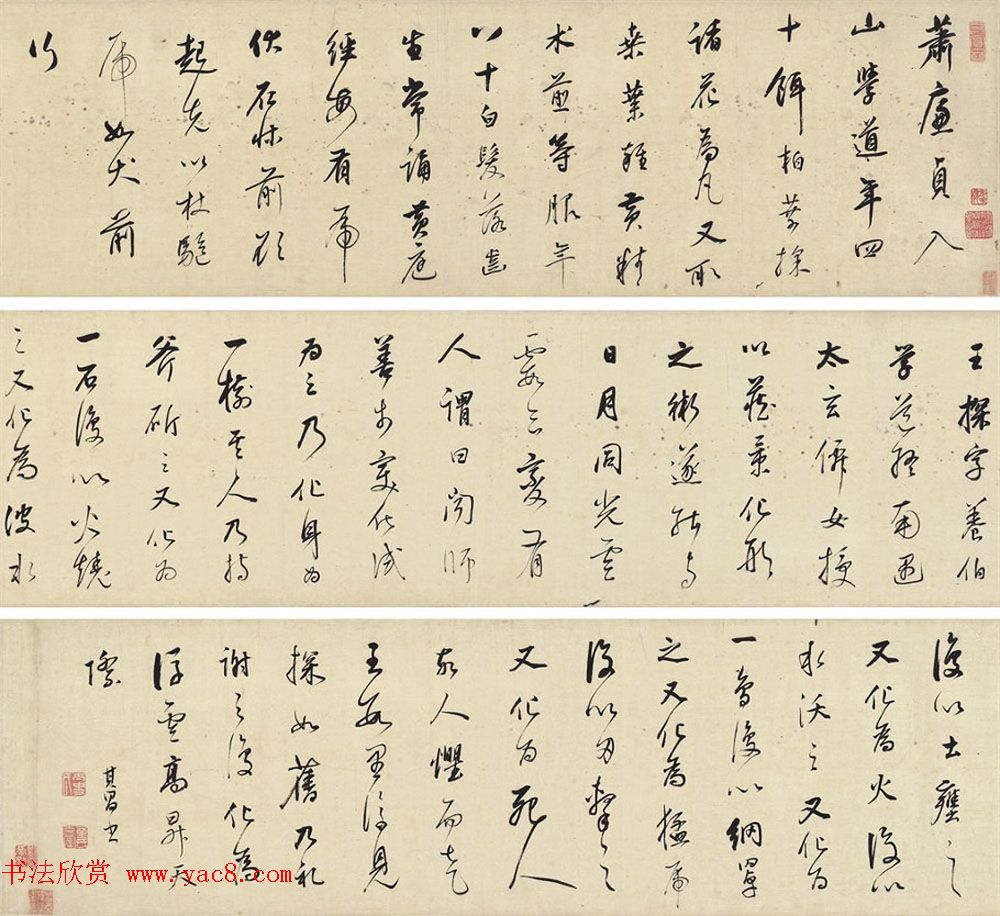 蕭廉貞入
山學道年四
十餌柏葉採
諸花為丸又取
桑葉雜黃精
朮煎等服年
八十白髮落齒
生常誦黃庭
經每有虎
伏石床前欲
起先以杖驅
虎如犬前
行
王探字養伯
学道終南遇
太玄僊女授
以藏景化形
之術遂能与
日月同光雲
霞合變有
人謂曰聞師
善市變化試
為之乃化身為
一樹其人乃持
斧斫之又化為
一石復以火燒
之又化為波水
復以土壅之
又化為火復以
水沃之又化為
一鳥復以網罩
之又化為猛虎
復以刃擊之
又化為死人
於人懼而走
王母里後見
探如舊乃礼
謝之復化為
浮雲高昇天
際
其昌書
书法欣赏 www.yac8.com